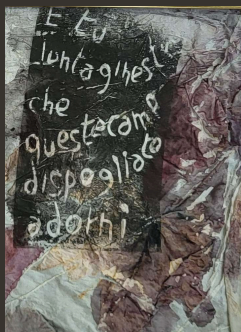 E tu
lentaginestr
che
questecamp
dispogliate
adorni